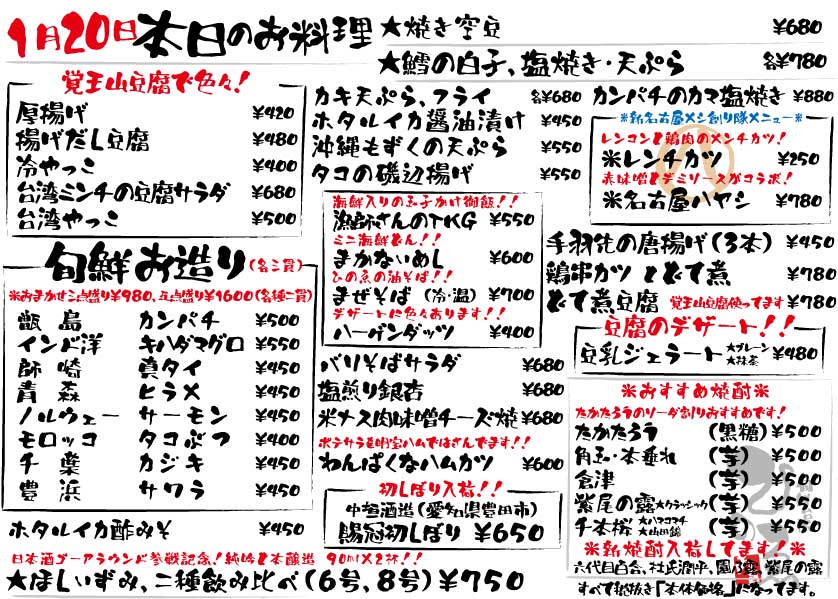 1月20日本日のお料理
★焼き空豆 ¥680
★鱈の白子、塩焼き・天ぷら 各¥780
覚王山豆腐で色々!
厚揚げ ¥420
揚げだし豆腐 ¥480
冷やっこ ¥400
台湾ミンチの豆腐サラダ ¥680
台湾やっこ ¥500
旬鮮お造り(各二貫)
※おまかせ三点盛り¥980、五点盛り¥1600(各種二貫)
甑島 カンパチ ¥500
インド洋 キハダマグロ ¥550
師崎 真タイ ¥450
青森 ヒラメ ¥450
ノルウェー サーモン ¥450
モロッコ タコぶつ ¥400
千葉 カジキ ¥450
豊浜 サワラ ¥450
ホタルイカ酢みそ ¥450
日本酒ゴーアラウンド参戦記念!純吟と本醸造 90ml×2杯!!
★ほしいずみ、二種飲み比べ(6号、8号)¥750
カキ天ぷら、フライ 各¥680
ホタルイカ醤油漬け ¥450
沖縄もずくの天ぷら ¥550
タコの磯辺揚げ ¥550
海鮮入りの玉子かけ御飯!!
漁師さんのTKG ¥550
ミニ海鮮どん!!
まかないめし ¥600
ひの魚の油そば!!
まぜそば(冷・温) ¥700
デザートに色々あります!!
ハーゲンダッツ ¥400
パリそばサラダ ¥680
塩煎り銀杏 ¥680
米ナス肉味噌チーズ焼 ¥680
ポテサラと明宝ハムではさんでます!!
わんぱくなハムカツ ¥600
初しぼり入荷!!
中垣酒造(愛知県豊田市)
賜冠初しぼり ¥650
カンパチのカマ塩焼き ¥880
※新名古屋メシ創り隊メニュー※
レンコンと鶏肉のメンチカツ!
※レンチカツ ¥250
赤味噌とデミソースがコラボ!
※名古屋ハヤシ ¥780
手羽先の唐揚げ(3本) ¥450
鶏串カツ とどて煮 ¥780
どて煮豆腐 覚王山豆腐使ってます ¥780
豆腐のデザート!!
豆乳ジェラート ★プレーン ★抹茶 ¥480
※おすすめ焼酎※
たかたろうのソーダ割りおすすめです!
たかたろう (黒糖) ¥500
角玉・本垂れ (芋) ¥500
倉津 (芋) ¥500
紫尾の露★クラシック (芋) ¥550
千本桜★ハマコマチ ★山田錦 (芋) ¥550
※新焼酎入荷してます!※
六代目百合、杜氏潤平、園乃露、紫尾の露
すべて税抜き「本体価格」になってます。